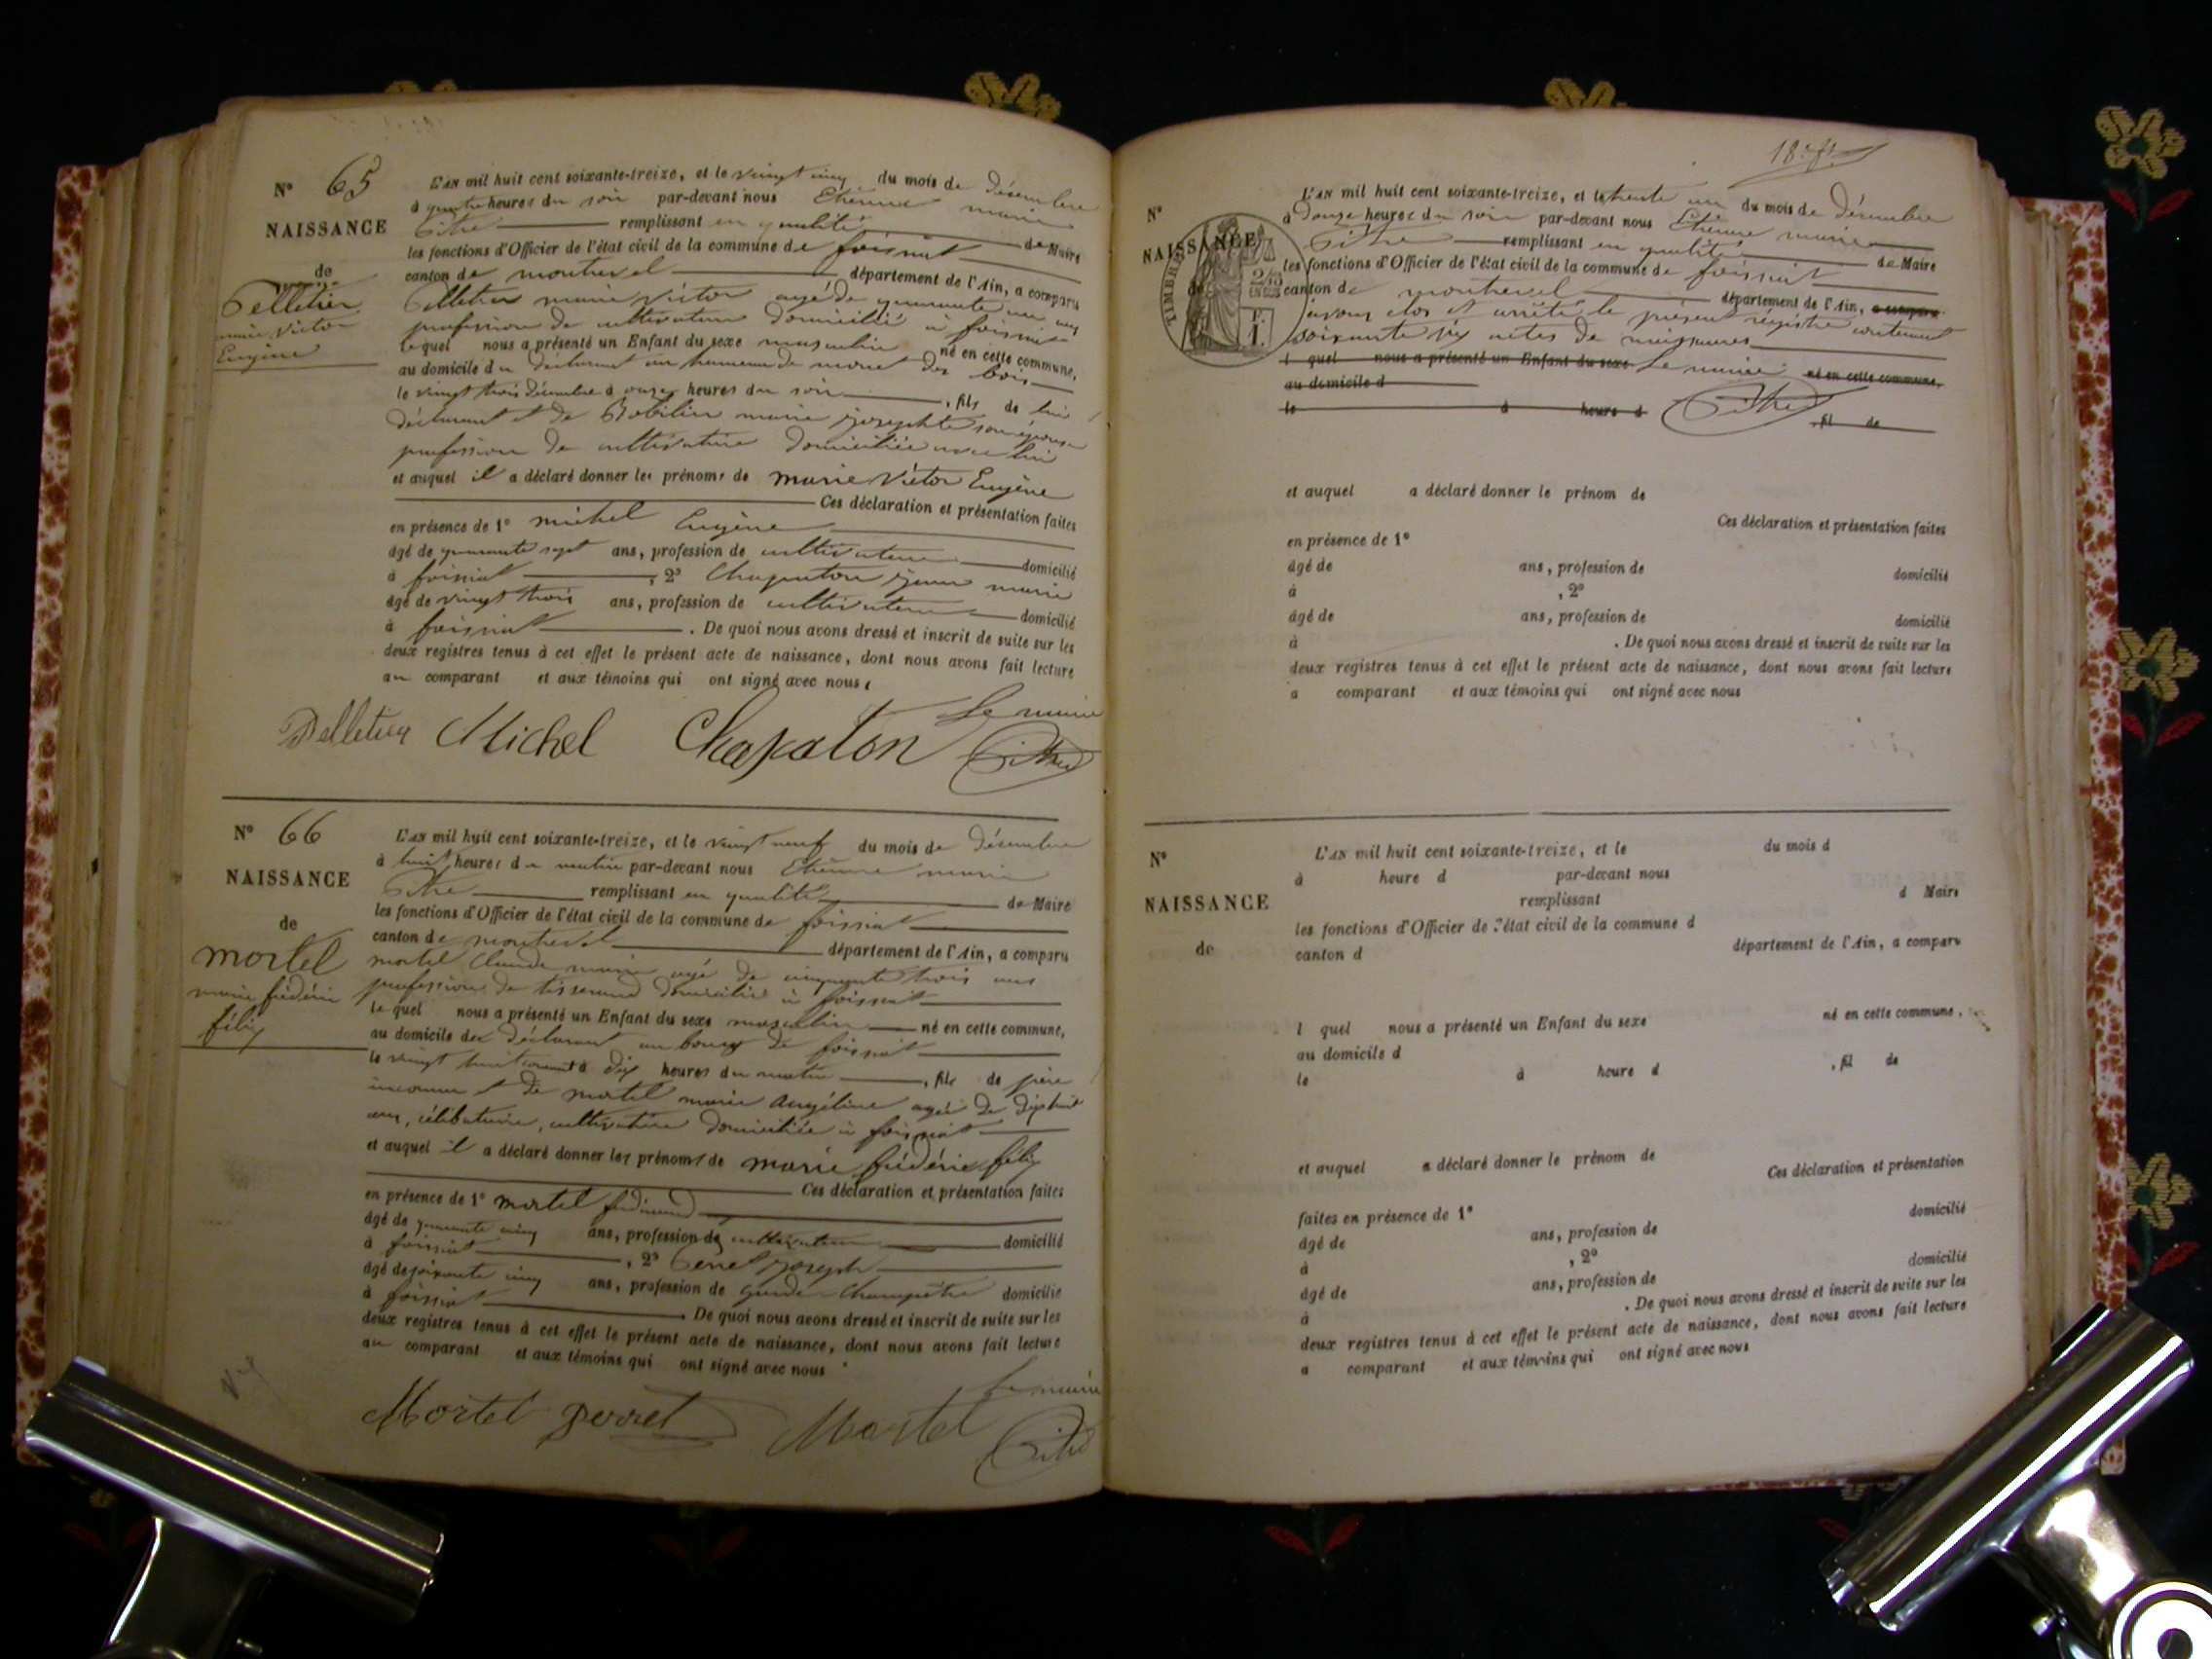 N° 65
NAISSANCE
de
Pelletier
marie Victor
Eugène
L'AN mil huit cent soixante-treize, et le vingt cinq du mois de Décembre
à quatre heures du soir par-devant nous Etienne marie
Pithe remplissant en qualité de Maire
les fonctions d'Officier de l'état civil de la commune de foissiat
canton de montrevel département de l'Ain, a comparu
Pelletier marie Victor agé de quarante un ans
profession de cultivateur domicilié à foissiat
lequel nous a présenté un Enfant du sexe masculin né en cette commune,
au domicile du déclarant au hameau de des bois
le vingt trois Décembre à onze heures du soir, fils de lui
déclarant et de Robilin marie josephte son épouse
profession de cultivatrice domiciliée avec lui
et auquel il a déclaré donner les prénoms de marie Victor Eugène
Ces déclaration et présentation faites
en présence de 1° michel Eugène
âgé de quarante sept ans, profession de cultivateur domicilié
à foissiat, 2° Chapaton marie
âgé de vingt trois ans, profession de cultivateur domicilié
à foissiat. De quoi nous avons dressé et inscrit de suite sur les
deux registres tenus à cet effet le présent acte de naissance, dont nous avons fait lecture
au comparant et aux témoins qui ont signé avec nous,
Pelletier Michel Chapaton Le maire
Pithe
N° 66
NAISSANCE
de
mortel
marie frédéric
félix
L'AN mil huit cent soixante-treize, et le vingt neuf du mois de Décembre
à huit heures du matin par-devant nous Etienne marie
Pithe remplissant en qualité de Maire
les fonctions d'Officier de l'état civil de la commune de foissiat
canton de montrevel département de l'Ain, a comparu
mortel Claude marie agé de cinquante trois ans
profession de tisserand domicilié à foissiat
lequel nous a présenté un Enfant du sexe masculin né en cette commune,
au domicile du déclarant au bourg de foissiat
le vingt huit courant à dix heures du matin, fils de père
inconnu et de mortel marie Angéline agée de dixhuit
ans, célibataire, cultivatrice domiciliée à foissiat
et auquel il a déclaré donner les prénoms de marie frédéric félix
Ces déclaration et présentation faites
en présence de 1° mortel ferdinand
âgé de quarante cinq ans, profession de cultivateur domicilié
à foissiat, 2° Perret joseph
âgé de soixante cinq ans, profession de garde Champêtre domicilié
à foissiat. De quoi nous avons dressé et inscrit de suite sur les
deux registres tenus à cet effet le présent acte de naissance, dont nous avons fait lecture
au comparant et aux témoins qui ont signé avec nous
Mortel perret Mortel Le maire
Pithe
N°
NAISSANCE
de
TIMBRE
L'AN mil huit cent soixante-treize, et le trente un du mois de Décembre
à Douze heures du soir par-devant nous Etienne marie
Pithe remplissant en qualité de Maire
les fonctions d'Officier de l'état civil de la commune de foissiat
canton de montrevel département de l'Ain, a comparu
avons clos et arrêté le présent régistre contenant
soixante six actes de naissances
l quel nous a présenté un Enfant du sexe Le maire né en cette commune,
au domicile d
le à heure d Pithe, fil de
et auquel a déclaré donner le prénom de
Ces déclaration et présentation faites
en présence de 1°
âgé de ans, profession de domicilié
à , 2°
âgé de ans, profession de domicilié
à . De quoi nous avons dressé et inscrit de suite sur les
deux registres tenus à cet effet le présent acte de naissance, dont nous avons fait lecture
a comparant et aux témoins qui ont signé avec nous
N°
NAISSANCE
de
L'AN mil huit cent soixante-treize, et le du mois d
à heure d par-devant nous
remplissant d Maire
les fonctions d'Officier de l'état civil de la commune d
canton d département de l'Ain, a comparu
l quel nous a présenté un Enfant du sexe né en cette commune,
au domicile d
le à heure d , fil de
et auquel a déclaré donner le prénom de
Ces déclaration et présentation
faites en présence de 1°
âgé de ans, profession de domicilié
à , 2°
âgé de ans, profession de domicilié
à . De quoi nous avons dressé et inscrit de suite sur les
deux registres tenus à cet effet le présent acte de naissance, dont nous avons fait lecture
a comparant et aux témoins qui ont signé avec nous